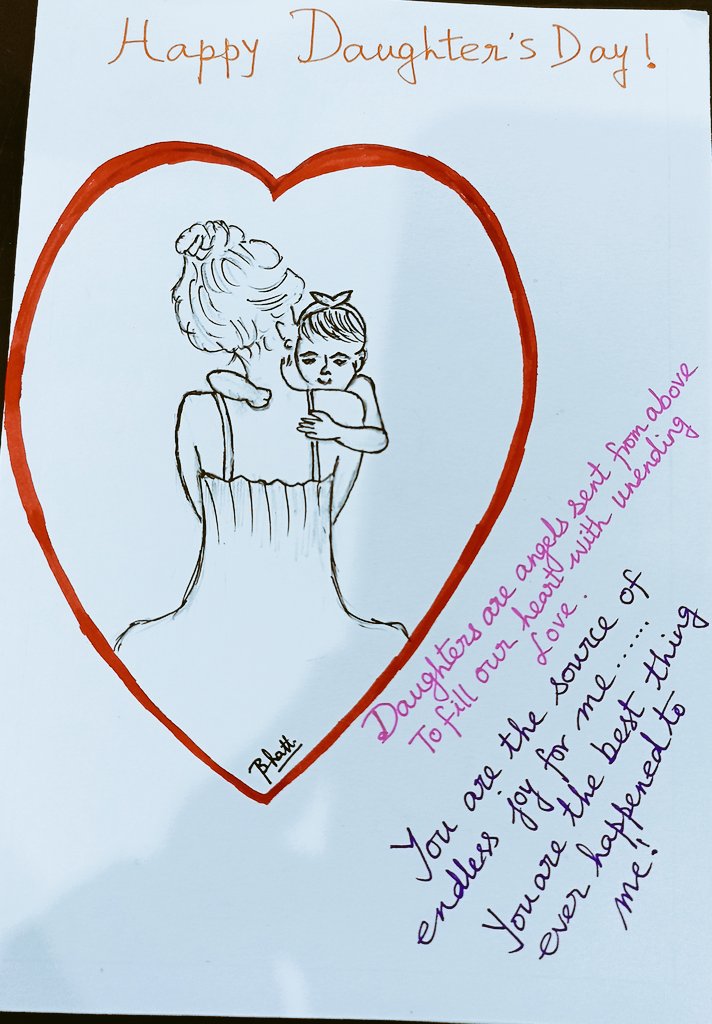 Happy Daughter's Day!
Bhatt.
Daughters are angels sent from above
To fill our heart with unending
Love.
You are the source of
endless joy for me.......
You are the best thing
ever happened to
me!